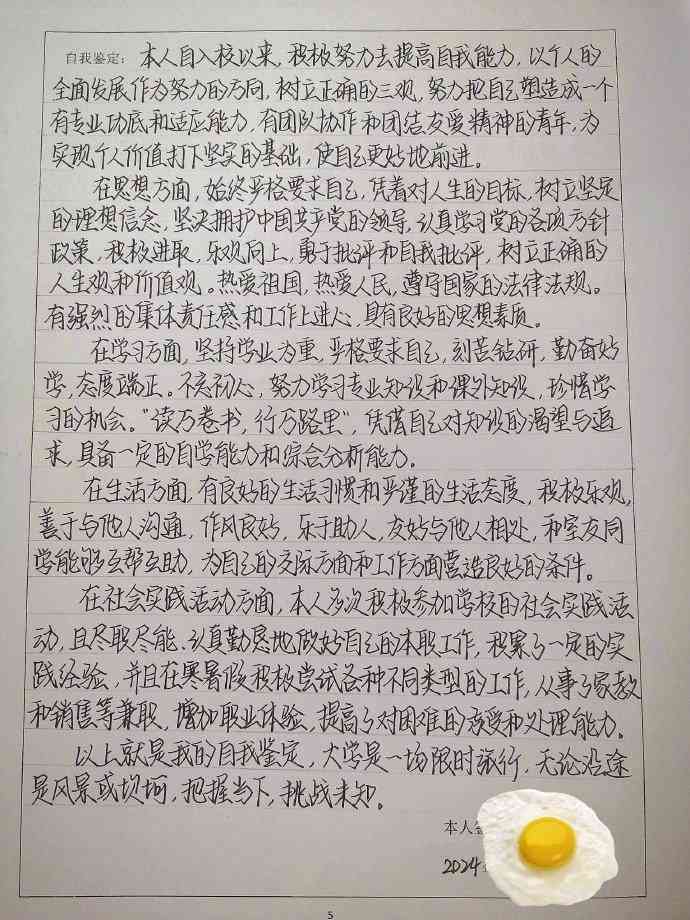 自我鉴定：本人自入校以来，积极努力去提高自我能力，以个人的
全面发展作为努力的方向，树立正确的三观，努力把自己塑造成一个
有专业功底和适应能力，有团队协作和团结友爱精神的青年，为
实现个人价值打下坚实的基础，使自己更好地前进。
在思想方面，始终严格要求自己，凭着对人生的目标，树立坚定
的理想信念，坚决拥护中国共产党的领导，认真学习党的各项方针
政策，积极进取，乐观向上，勇于批评和自我批评，树立正确的
人生观和价值观。热爱祖国，热爱人民，遵守国家的法律法规。
有强烈的集体责任感和工作上进心，具有良好的思想素质。
在学习方面，坚持学业为重，严格要求自己，刻苦钻研，勤奋好
学，态度端正。不忘初心，努力学习专业知识和课外知识，珍惜学
习的机会。“读万卷书，行万路里”，凭借自己对知识的渴望与追
求，具备一定的自学能力和综合分析能力。
在生活方面，有良好的生活习惯和严谨的生活态度，积极乐观，
善于与他人沟通，作风良好，乐于助人，友好与他人相处，和室友同
学能够互帮互助，为自己的交际方面和工作方面营造良好的条件。
在社会实践活动方面，本人多次积极参加学校的社会实践活
动，且尽职尽能、认真勤恳地做好自己的本职工作，积累了一定的实
践经验，并且在寒暑假积极尝试各种不同类型的工作，从事了家教
和销售等兼职，增加职业体验，提高了对困难的承受和处理能力。
以上就是我的自我鉴定，大学是一场限时旅行，无论沿途
是风景或坝坷，把握当下，挑战未知。
本人
2024
5